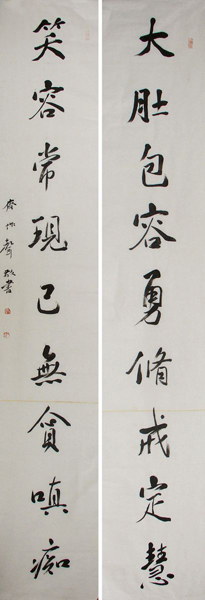 大肚包容勇脩戒定慧
笑容常現已無貪嗔痴